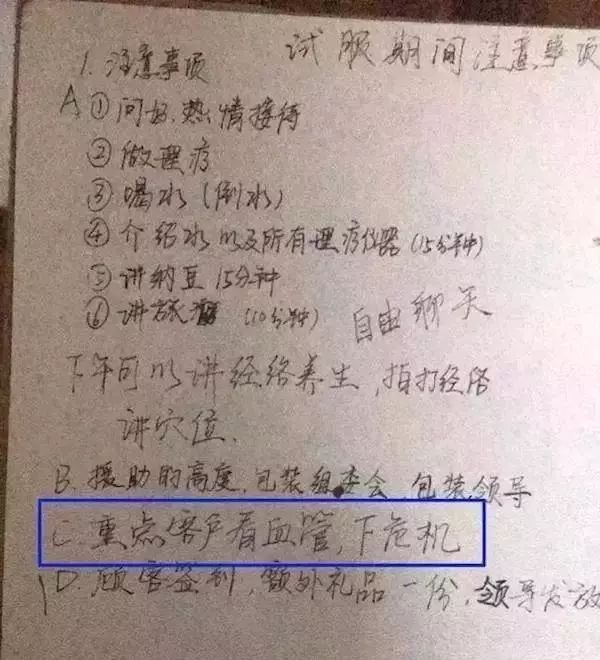 试服期间注意事项
1. 注意事项
A ① 问好.热情接待
② 做理疗
③ 喝水(倒水)
④ 介绍水以及所有理疗仪器(15分钟)
⑤ 讲纳豆 15分钟
⑥ 讲旅 (10分钟) 自由聊天
下午可以讲经络养生,拍打经络
讲穴位.
B. 援助的高度,包装组委会,包装领导
C. 重点客户看血管,下危机
D. 顾客签到,额外礼品一份,领导发放